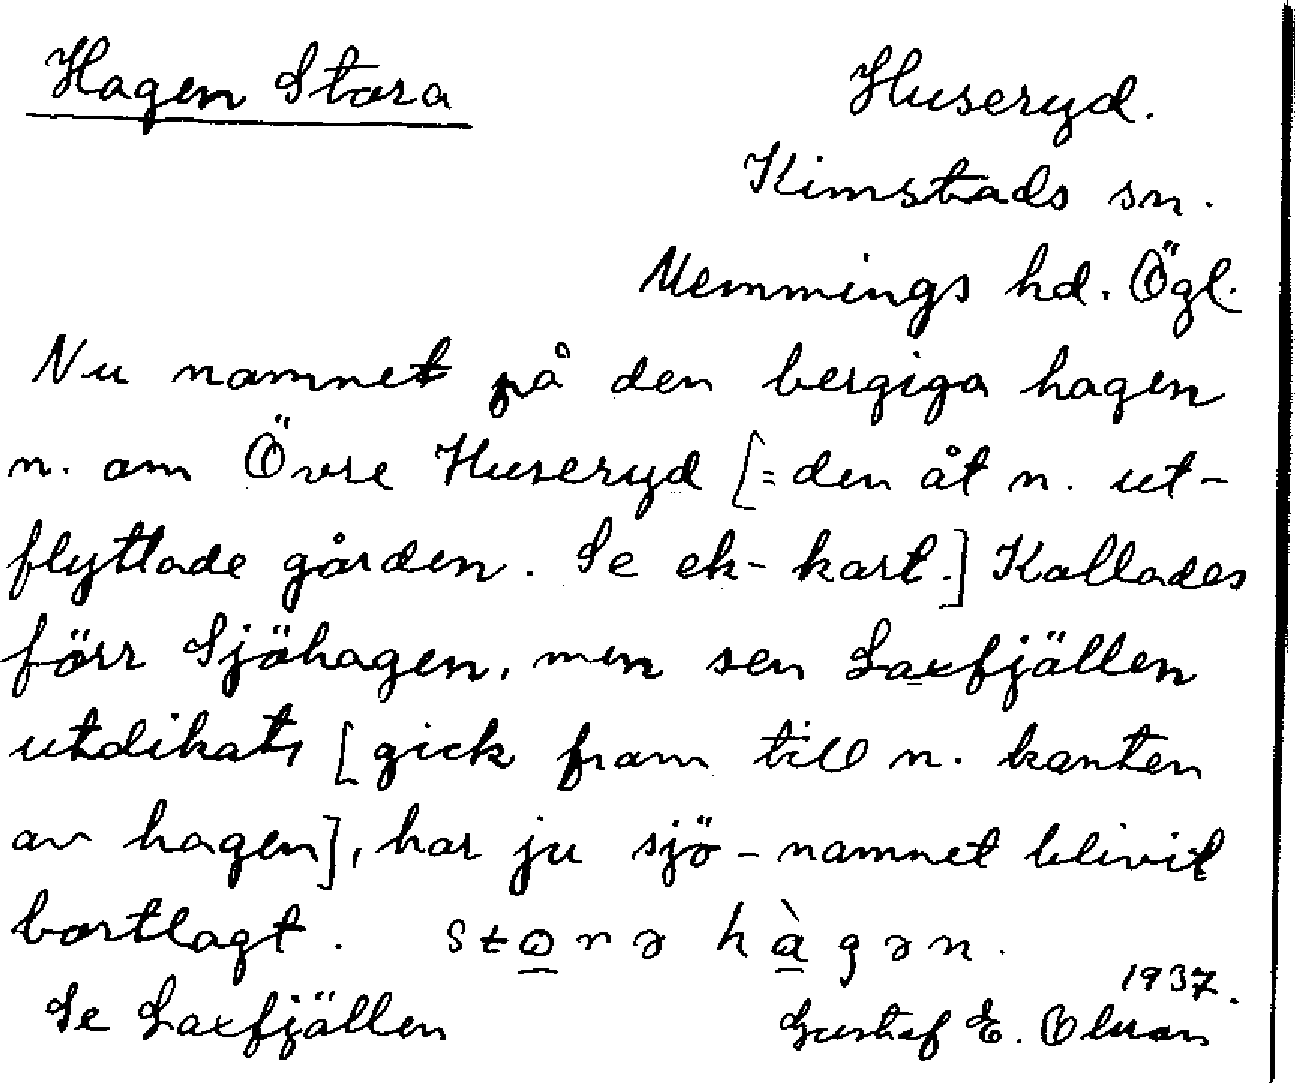 Hagen Stora
Huseryd.
Kimstads sn.
Memmings hd. Ögl.
Nu namnet på den bergiga hagen
n. om Övre Huseryd [= den åt n. ut-
flyttade gården. Se ek-kart.] Kallades
förr Sjöhagen, men sen Laxfjällen
utdikats [gick fram till n. kanten
av hagen], har ju sjö-namnet blivit
bortlagt. hàgən.
1937.
Se Laxfjällen
Gustaf E. Olsson